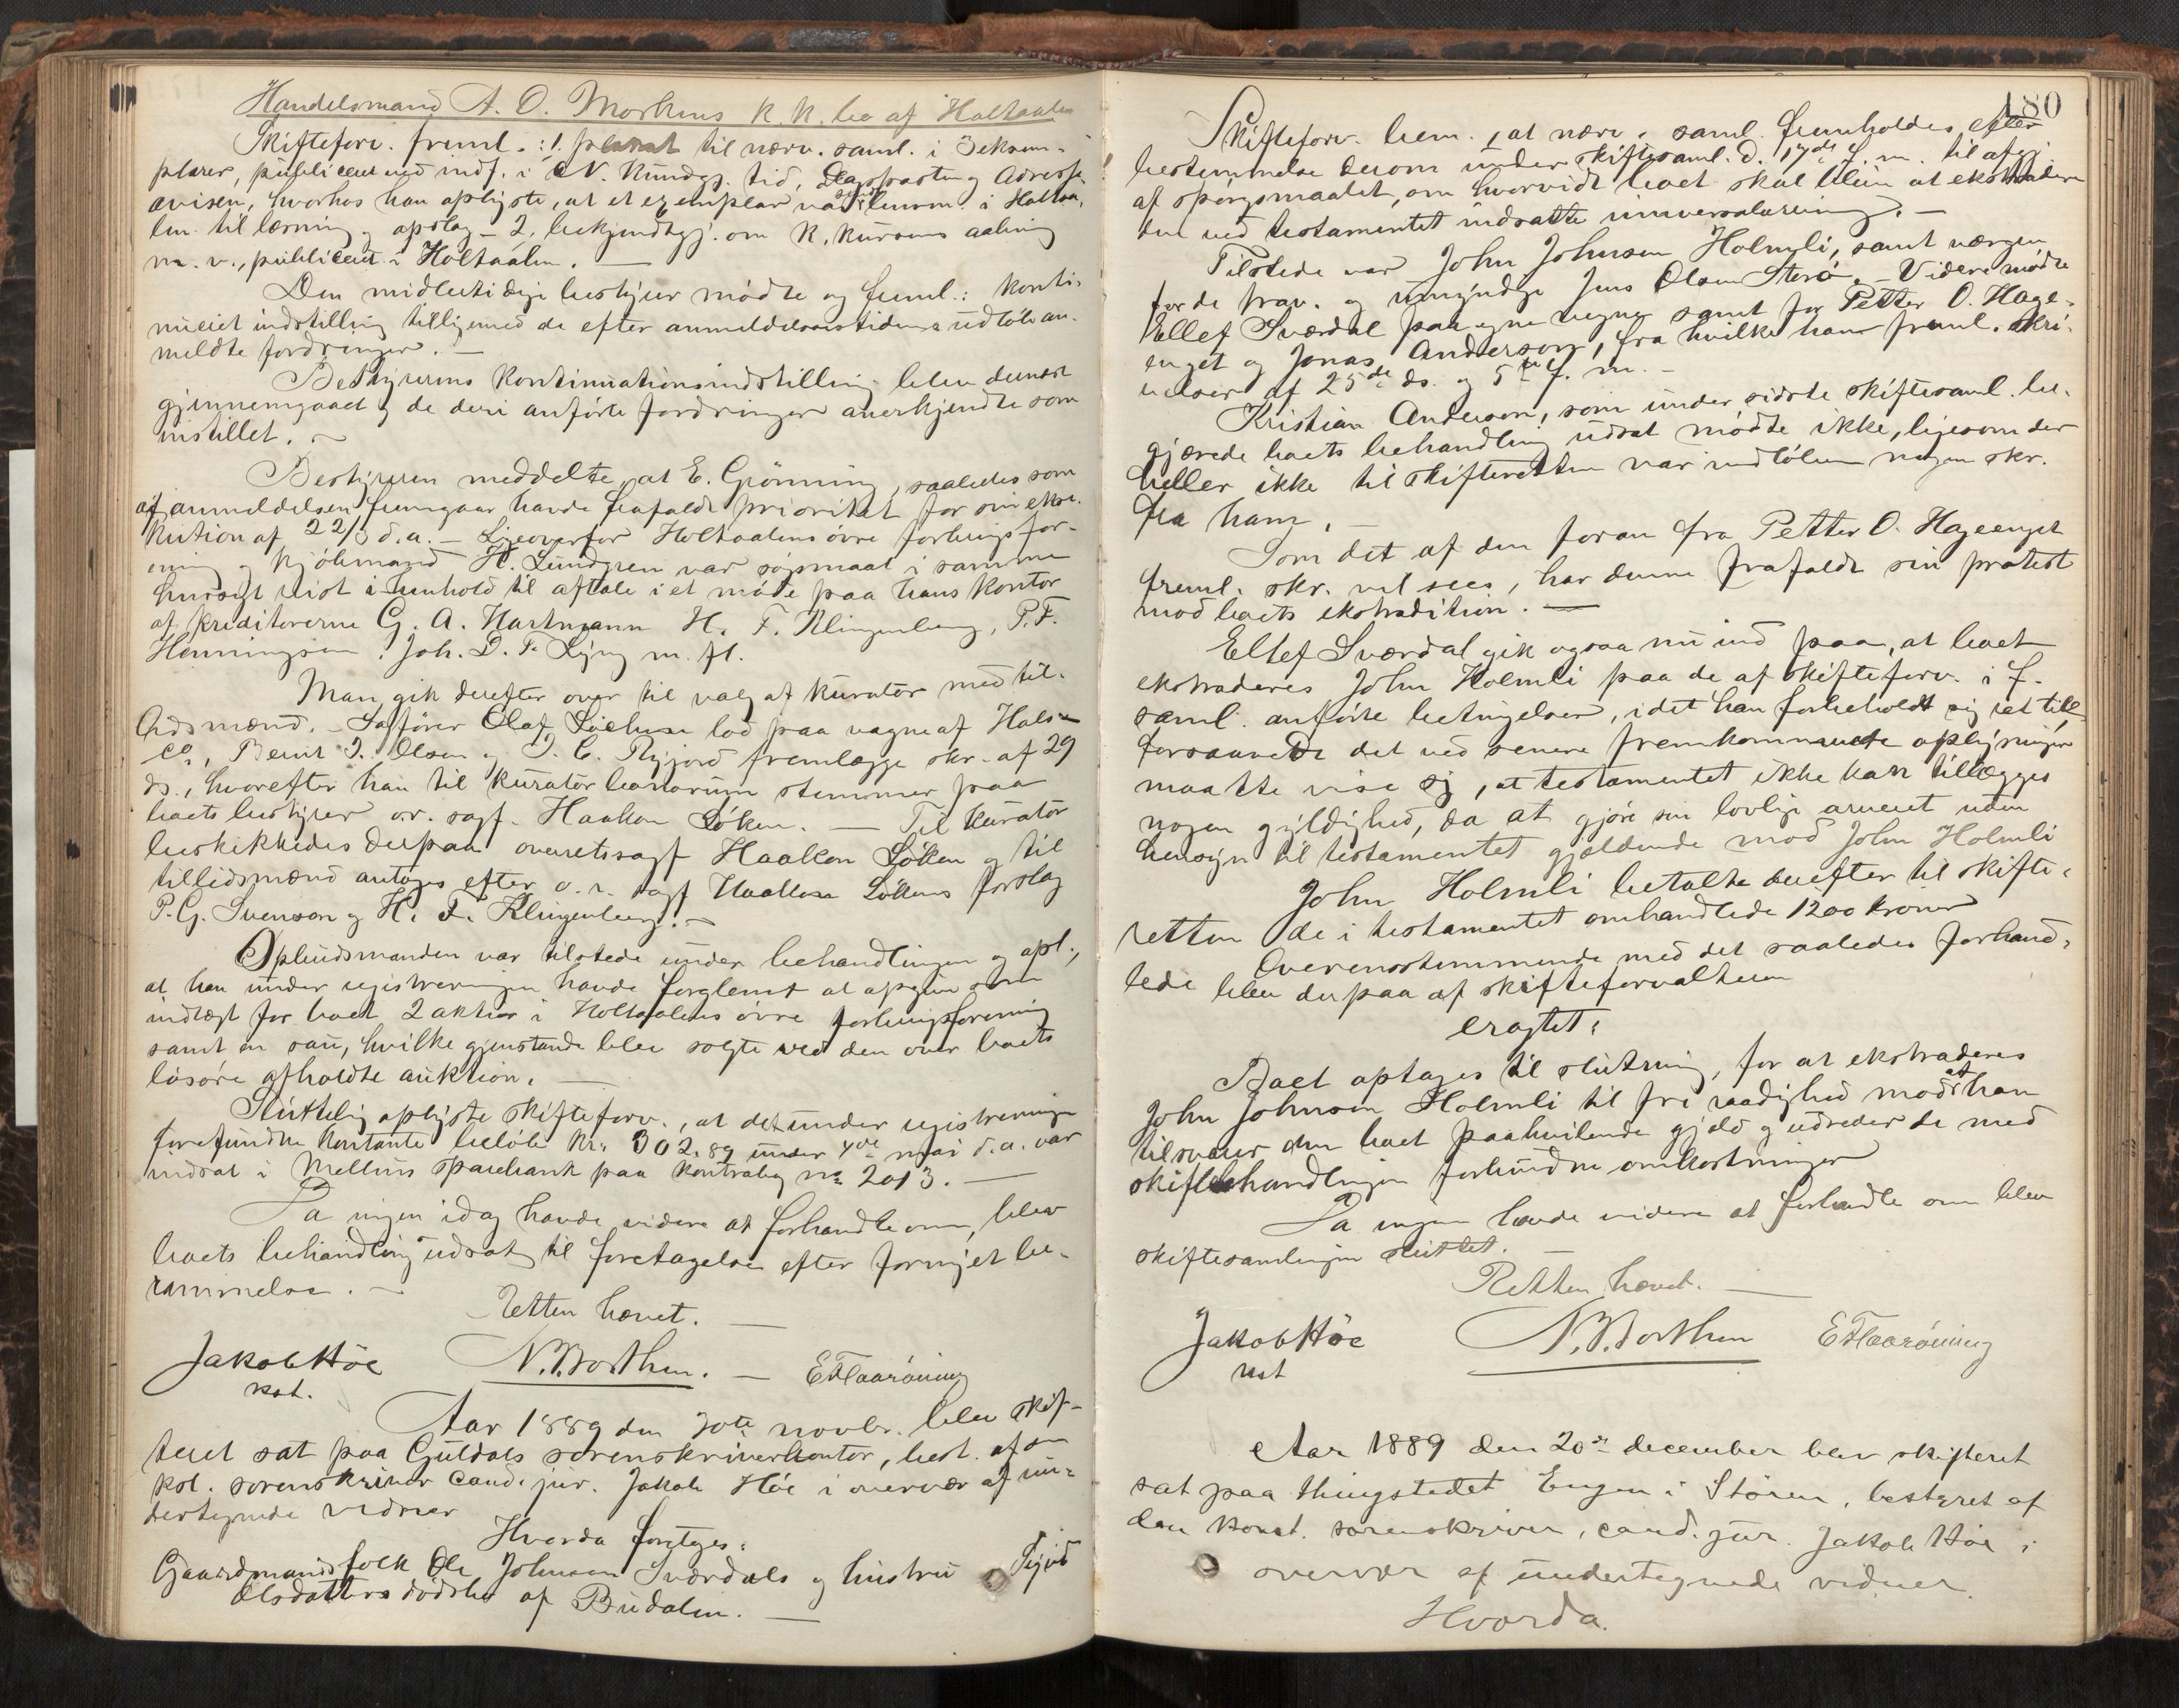 Handelsmand A. O. Morkens k. k. bo af Holtaalen
Skifteforv. freml.: 1. plakat til nærv. saml. i 3 eksem-
plarer, publiceret ved indf. i N. Kundgj. tid, Dagsposten og Adresse
avisen, hvorhos han oplyste, at et exemplar var sendt lensm. i Holtaa-
len til læsning og opslag - 2, bekjendtgj. om k. kursens aabning
m. v., publiceret i Holtaalen. —
Den midlertidige bestyrer mødte og freml.: konti-
nueret indstilling tilligemed de efter anmeldelsestidens udløb an-
meldte fordringer. —
Bestyrerens kontinuationsindstilling blev dernæst
gjennemgaaet og de deri anførte fordringer anerkjendte som
instillet. —
Bestyreren meddelte, at E. Grønning, saaledes som
af anmeldelsen fremgaar havde frafaldt prioritet for sin ekse-
kution af 22/3 d. a. — Ligeoverfor Holtaalens øvre forbrugsfor-
ening og kjøbmand H. Lundgren var søgsmaal i samme
hensigt reist i henhold til aftale i et møde paa hans kontor
af kreditorerne G. A. Hartmann H. F. Klingenberg, P. F.
Henningsen, Joh. D. F. Lyng m. fl.
Man gik derefter over til valg af kurator med til-
lidsmænd. - Sagfører Olaf lod paa vegne af Hals &
Co, Bernt I. Olsen og fremlægge skr. af 29
ds., hvorefter han til kurator bonorum stemmer paa
boets bestyrer o.r. sagf. Haakon Løken. — Til kurator
beskikkedes derpaa overretssagf Haakon Løken og til
tillidsmænd antoges efter o. r. sagf Haakon Løkens forslag
P. G. Svenson og H. F. Klingenberg. —
Opbudsmanden var tilstede under behandlingen og opl.,
at han under registreringen havde forglemt at opgive som
indlagt for boet 2 aktier i Holtaalens øvre forbrugsforening
samt en sau, hvilke gjenstande blev solgte ved den over boets
løsøre afholdte auktion. —
Sluttelig oplyste skifteforv., at det under registreringen
forefundne kontante beløb kr. 302.89 under 4de mai d. a. var
indsat i Melhus sparebank paa kontrabog no 2013. —
Da ingen idag havde videre at forhandle om, blev
boets behandling udsat til foretagelse efter fornyet be-
rammelse. —
Retten hævet. —
Jakob Høe N. Borthen. — E Haarøning
kst.
Aar 1889 den 30te novbr. blev skif-
teret sat paa Guldals sorenskriverkontor, best. af den
kst. sorenskriver cand. jur. Jakob Høe i overvær af un-
dertegnede vidner
Hvorda foretoges:
Gaardmandsfolk Ole Johnsen Sværdals og hustru
Olsdatters dødsbo af Budalen. —
180
Skifteforv. bem., at nærv. saml. fremholdes efter
bestemmelse derom under skiftesaml. d. 17de f. m. til afgj.
af spørgsmaalet, om hvorvidt boet skal blive at ekstradere
den ved testamentet indsatte universalarving. —
Tilstede var John Johnsen Holmli, samt værgen
for de frav. og umyndige Jens Olsen Sterø. — Videre mødte
Ellef Sværdal paa egne vegne samt for Petter O. Hage-
enget og Jonas Anderson, fra hvilke han freml. skri-
velser af 25de ds. og 5te f. m. —
Kristian Anderson, som under sidste skiftesaml. be-
gjærede boets behandling udsat mødte ikke, ligesom der
heller ikke til skifteretten var indløben nogen skr.
fra ham. —
Som det af den foran fra Petter O. Hageenget
freml. skr. vil sees, har denne frafaldt sin protest
mod boets ekstradition. —
Ellef Sværdal gik ogsaa nu ind paa, at boet
ekstraderes John Holmli paa de af skifteforv. i f.
saml. anførte betingelser, idet han forbeholdt sig ret til
forsaavidt det ved senere fremkommende oplysninger
maatte vise sig, at testamentet ikke kan tillægges
nogen gyldighed, da at gjøre sin lovlige arveret uden
hensyn til testamentet gjældende mod John Holmli
John Holmli betalte derefter til skifte-
retten de i testamentet omhandlede 1200 kroner
Overensstemmende med det saaledes forhand-
lede blev derpaa af skifteforvalteren
eragtet:
Boet optages til slutning, for at ekstraderes
John Johnsen Holmli til fri raadighed mod at han
tilsvarer den boet paahvilende gjæld og udreder de med
skiftebehandlingen forbundne omkostninger
Da ingen havde videre at forhandle om blev
skiftesamlingen sluttet. —
Retten hævet. —
Jakob Høe N. Borthen E Haarøning
kst
Aar 1889 den 20de december blev skifteret
sat paa thingstedet Engen i Støren, bestyret af
den konst. sorenskriver, cand. jur. Jakob Høe i
overvær af undertegnede vidner
Hvorda